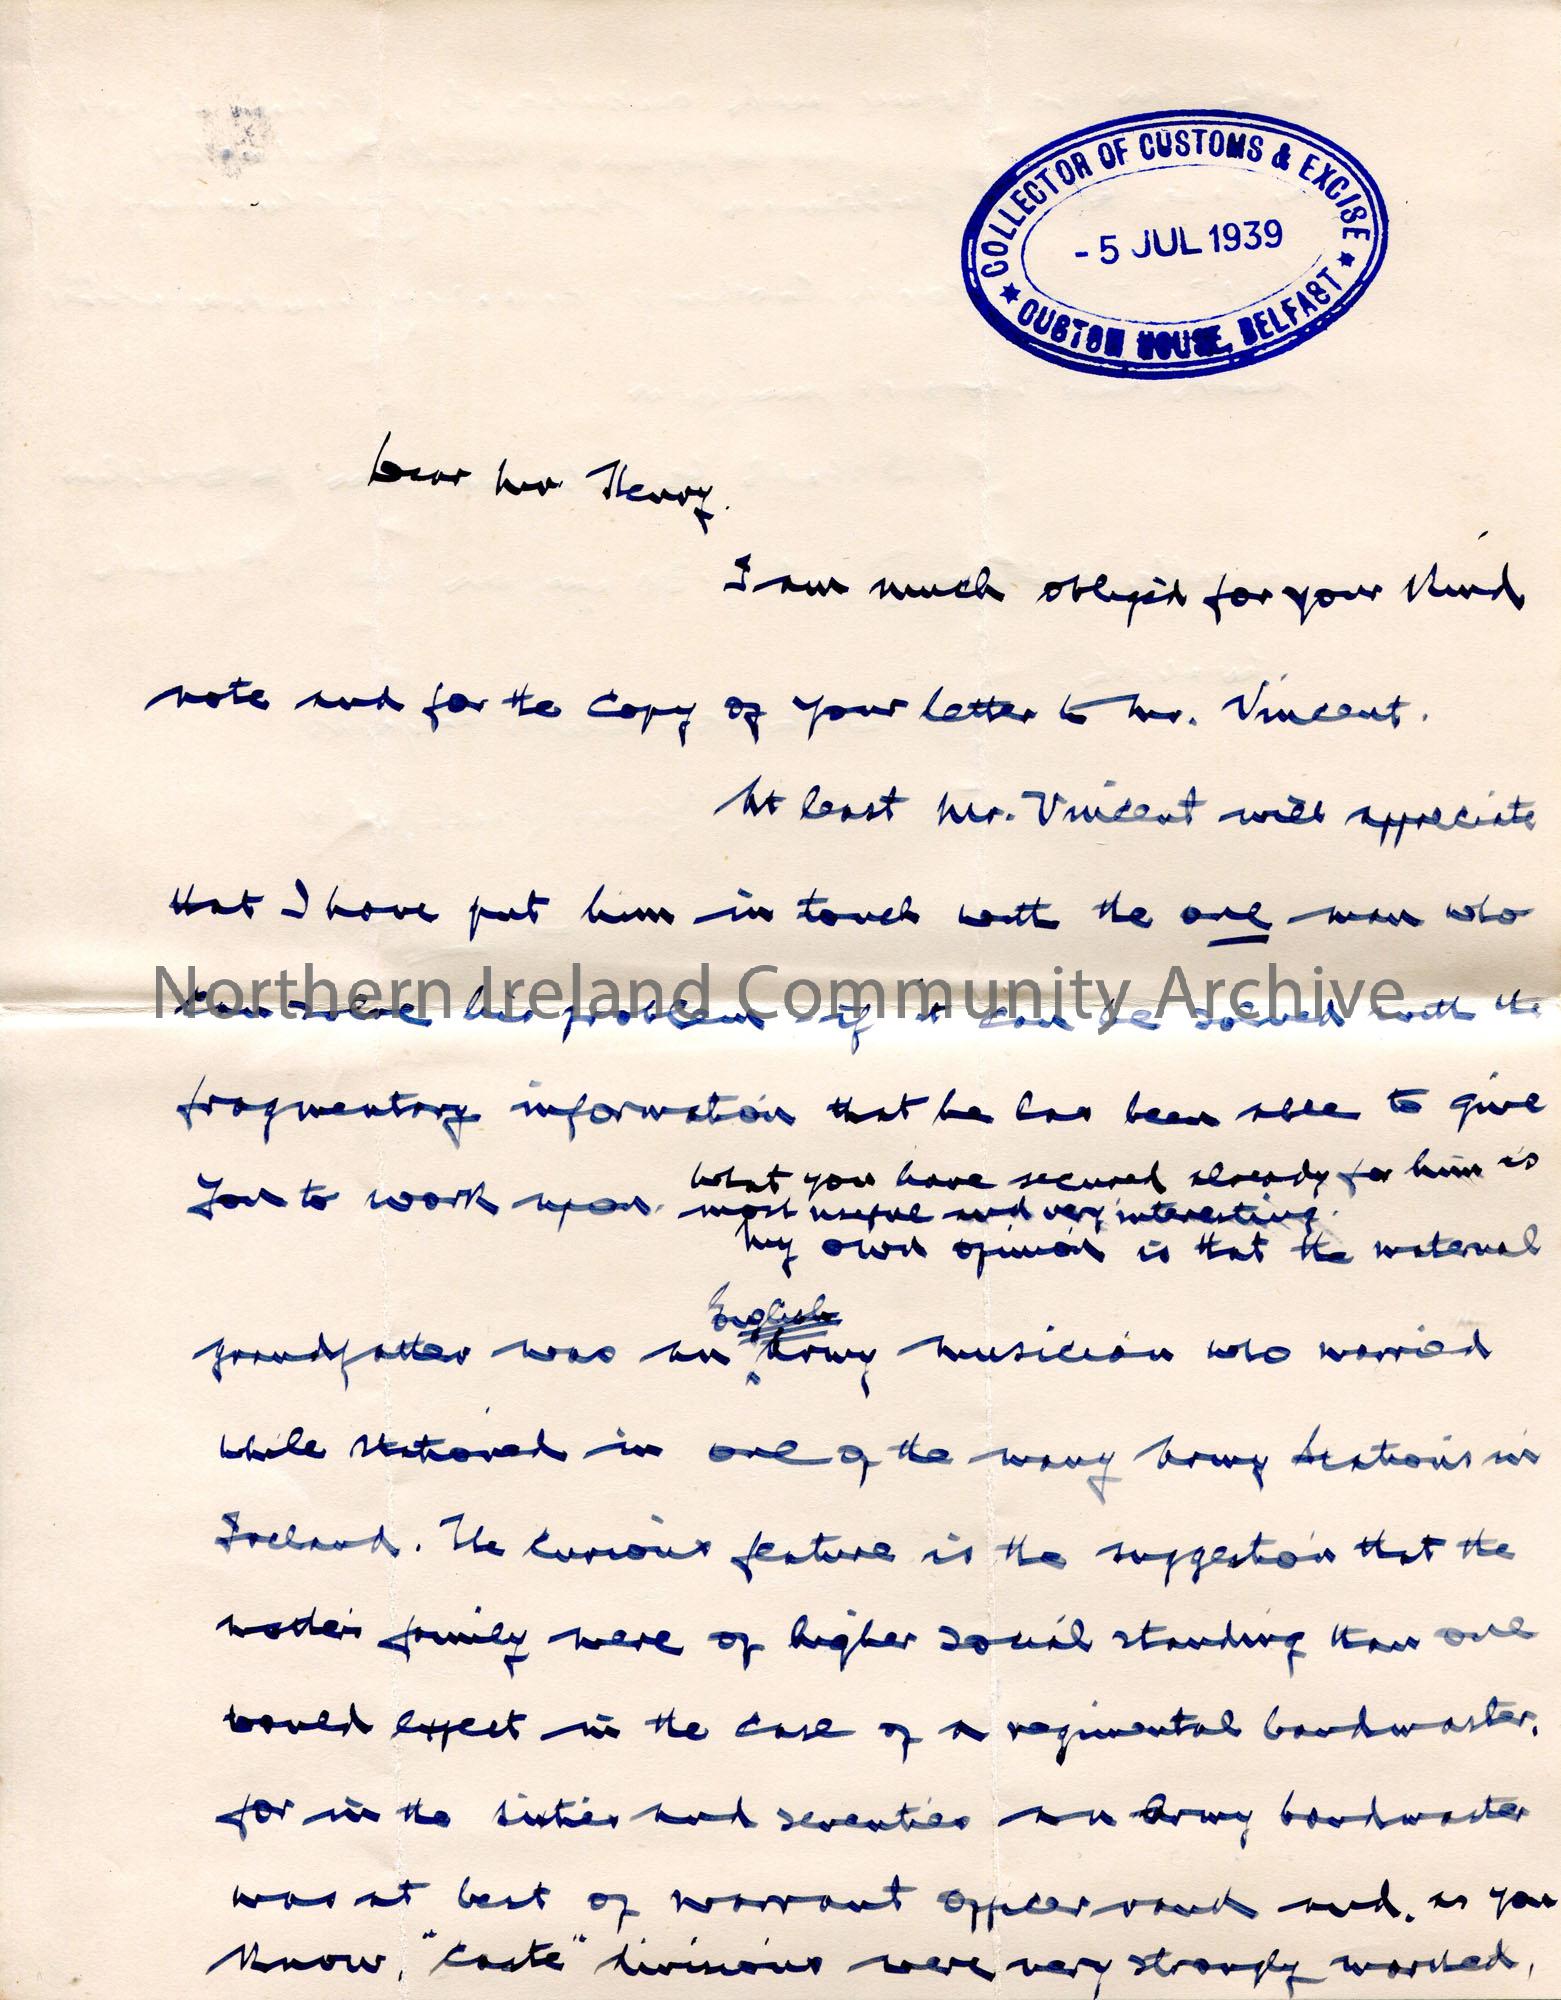 COLLECTOR OF CUSTOMS & EXCISE
- 5 JUL 1939
CUSTOM HOUSE, BELFAST
Dear Mr. Henry.
I am much obliged for your kind
note and for the copy of your letter to Mr. Vincent.
At least Mr. Vincent will appreciate
that I have put him in touch with the one man who
Northern Ireland Community Archive
can solve his problem - if it can be solved with the
fragmentary information that he has been able to give
you to work upon. What you have secured already for him is
most useful and very interesting.
My own opinion is that the maternal
English
grandfather was an Army musician who married
while stationed in one of the many Army Stations in
Ireland. The curious feature is the suggestion that the
mother's family were of higher social standing than one
would expect in the case of a regimental bandmaster,
for in the sixties and seventies an Army bandmaster
was at best of warrant officer rank and, as you
know, "caste" divisions were very strongly marked,